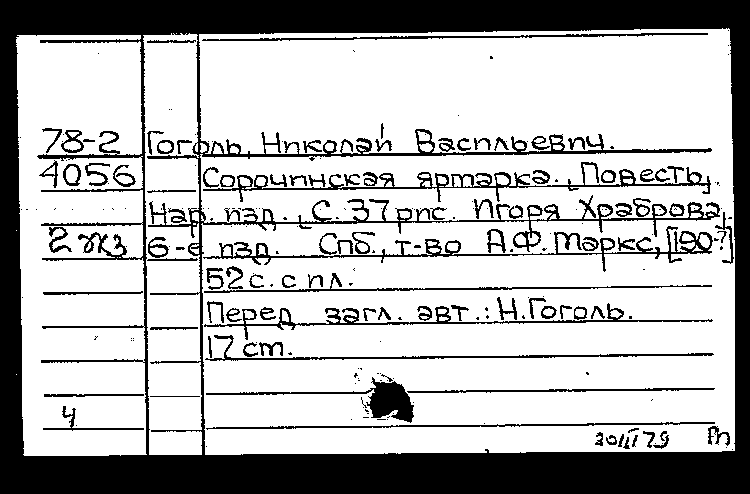 78-2 Гоголь, Николай Васильевич.
4056 Сорочинская ярмарка. [Повесть].
Нар. изд. [С. 37 рис. Игоря Храброва]
2 экз 6-е изд. Спб., т-во А.Ф. Маркс, [190-?]
52 с. с ил.
Перед загл. авт.: Н. Гоголь.
17 см.
4
30/III 79